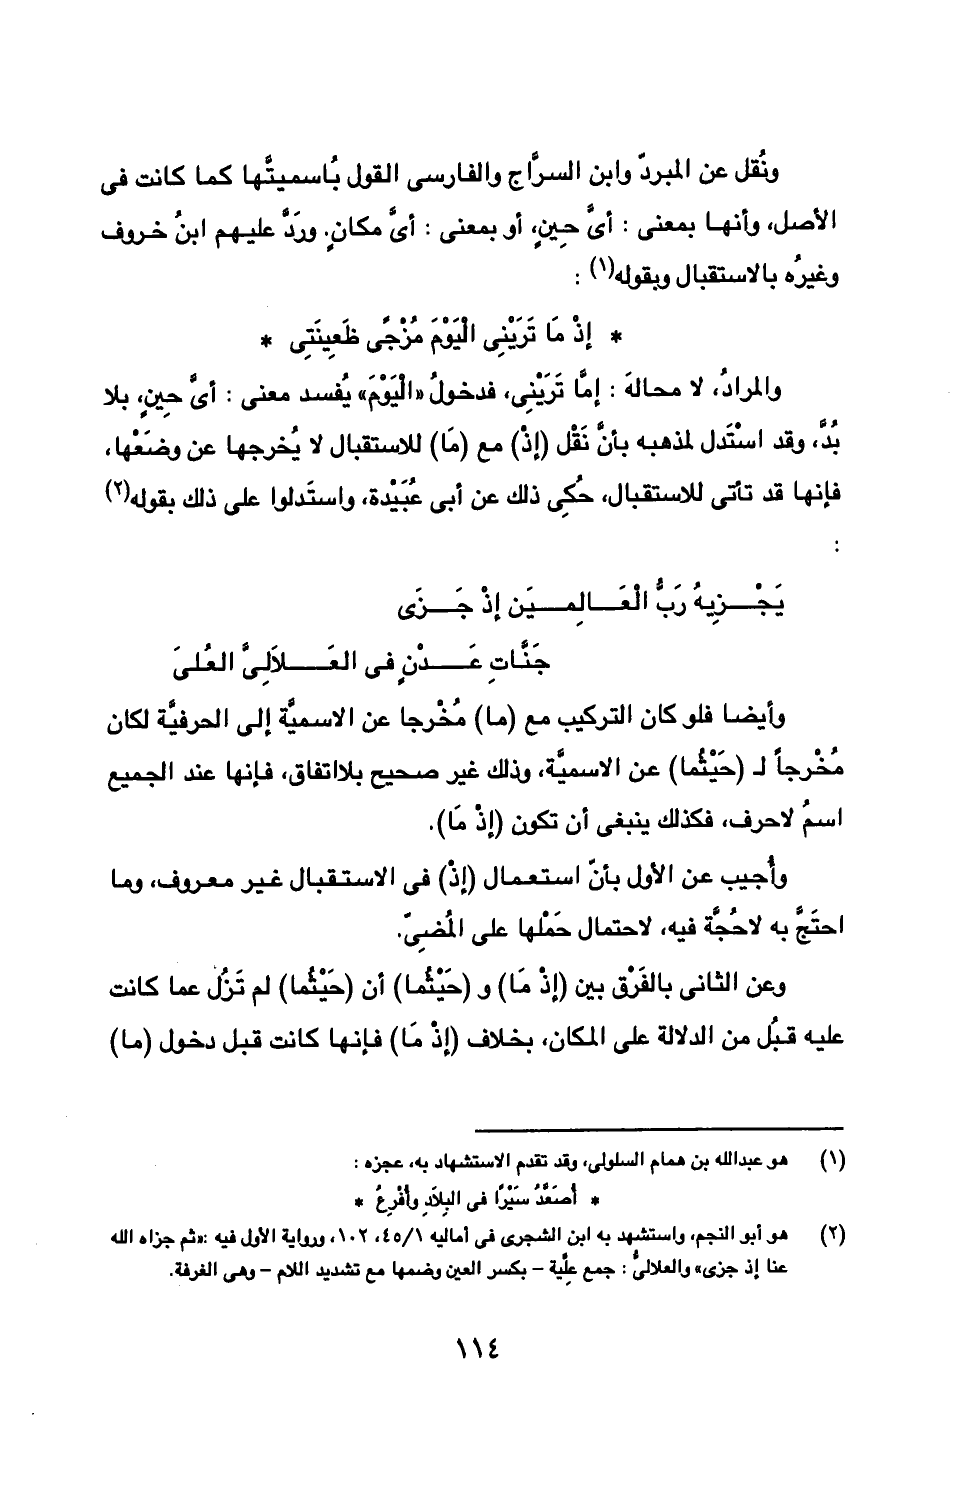 ونُقل عن المبردّ وابن السرَّاج والفارسى القول بُاسميتَّها كما كانت فى
الأصل، وأنها بمعنى : أىَّ حِينٍ، أو بمعنى : أىَّ مكانٍ. وردَّ عليهم ابنُ خروف
وغيرُه بالاستقبال وبقوله(١) :
* إذْ مَا تَرَيْنِى الْيَوْمَ مُزْجًى ظَعِينَتِى *
والمرادُ، لا محالةَ : إمَّا تَرَيْنِى، فدخولُ «الْيَوْمَ» يُفسد معنى : أىَّ حِينٍ، بلا
بُدَّ، وقد استْدَل لمذهبه بأنَّ نَقْل (إذْ) مع (مَا) للاستقبال لا يُخرجها عن وضَعْها،
فإنها قد تأتى للاستقبال، حُكِى ذلك عن أبى عُبَيْدة، واستَدلوا على ذلك بقوله(٢)
:
يَجْـــزِيهُ رَبُّ الْعَـــالمِـــيَن إذْ جَـــزَى
جَنَّاتِ عَـــدْنٍ فى العَـــلاَلِىَّ العُلىَ
وأيضا فلو كان التركيب مع (ما) مُخْرجا عن الاسميَّة إلى الحرفيَّة لكان
مُخْرجاً لـ (حَيْثُما) عن الاسميَّة، وذلك غير صحيح بلااتفاق، فإنها عند الجميع
اسمُ لاحرف، فكذلك ينبغى أن تكون (إذْ مَا).
وأُجيب عن الأول بأنّ استعمال (إذْ) فى الاستقبال غير معروف، وما
احتَجَّ به لاحُجَّة فيه، لاحتمال حَمْلها على المُضىّ.
وعن الثانى بالفَرْق بين (إذْ مَا) و (حَيْثُما) أن (حَيْثُما) لم تَزُل عما كانت
عليه قبُل من الدلالة على المكان، بخلاف (إذْ مَا) فإنها كانت قبل دخول (ما)
(١) هو عبدالله بن همام السلولى، وقد تقدم الاستشهاد به، عجزه :
* أُصَعَّدُ سَيْرًا فى البِلاَدِ وأفْرِعُ *
(٢) هو أبو النجم، واستشهد به ابن الشجرى فى أماليه ٤٥/١، ١٠٢، ورواية الأول فيه :«ثم جزاه الله
عنا إذ جزى» والعلالىُّ : جمع عِلَّية – بكسر العين وضمها مع تشديد اللام – وهى الغرفة.
١١٤